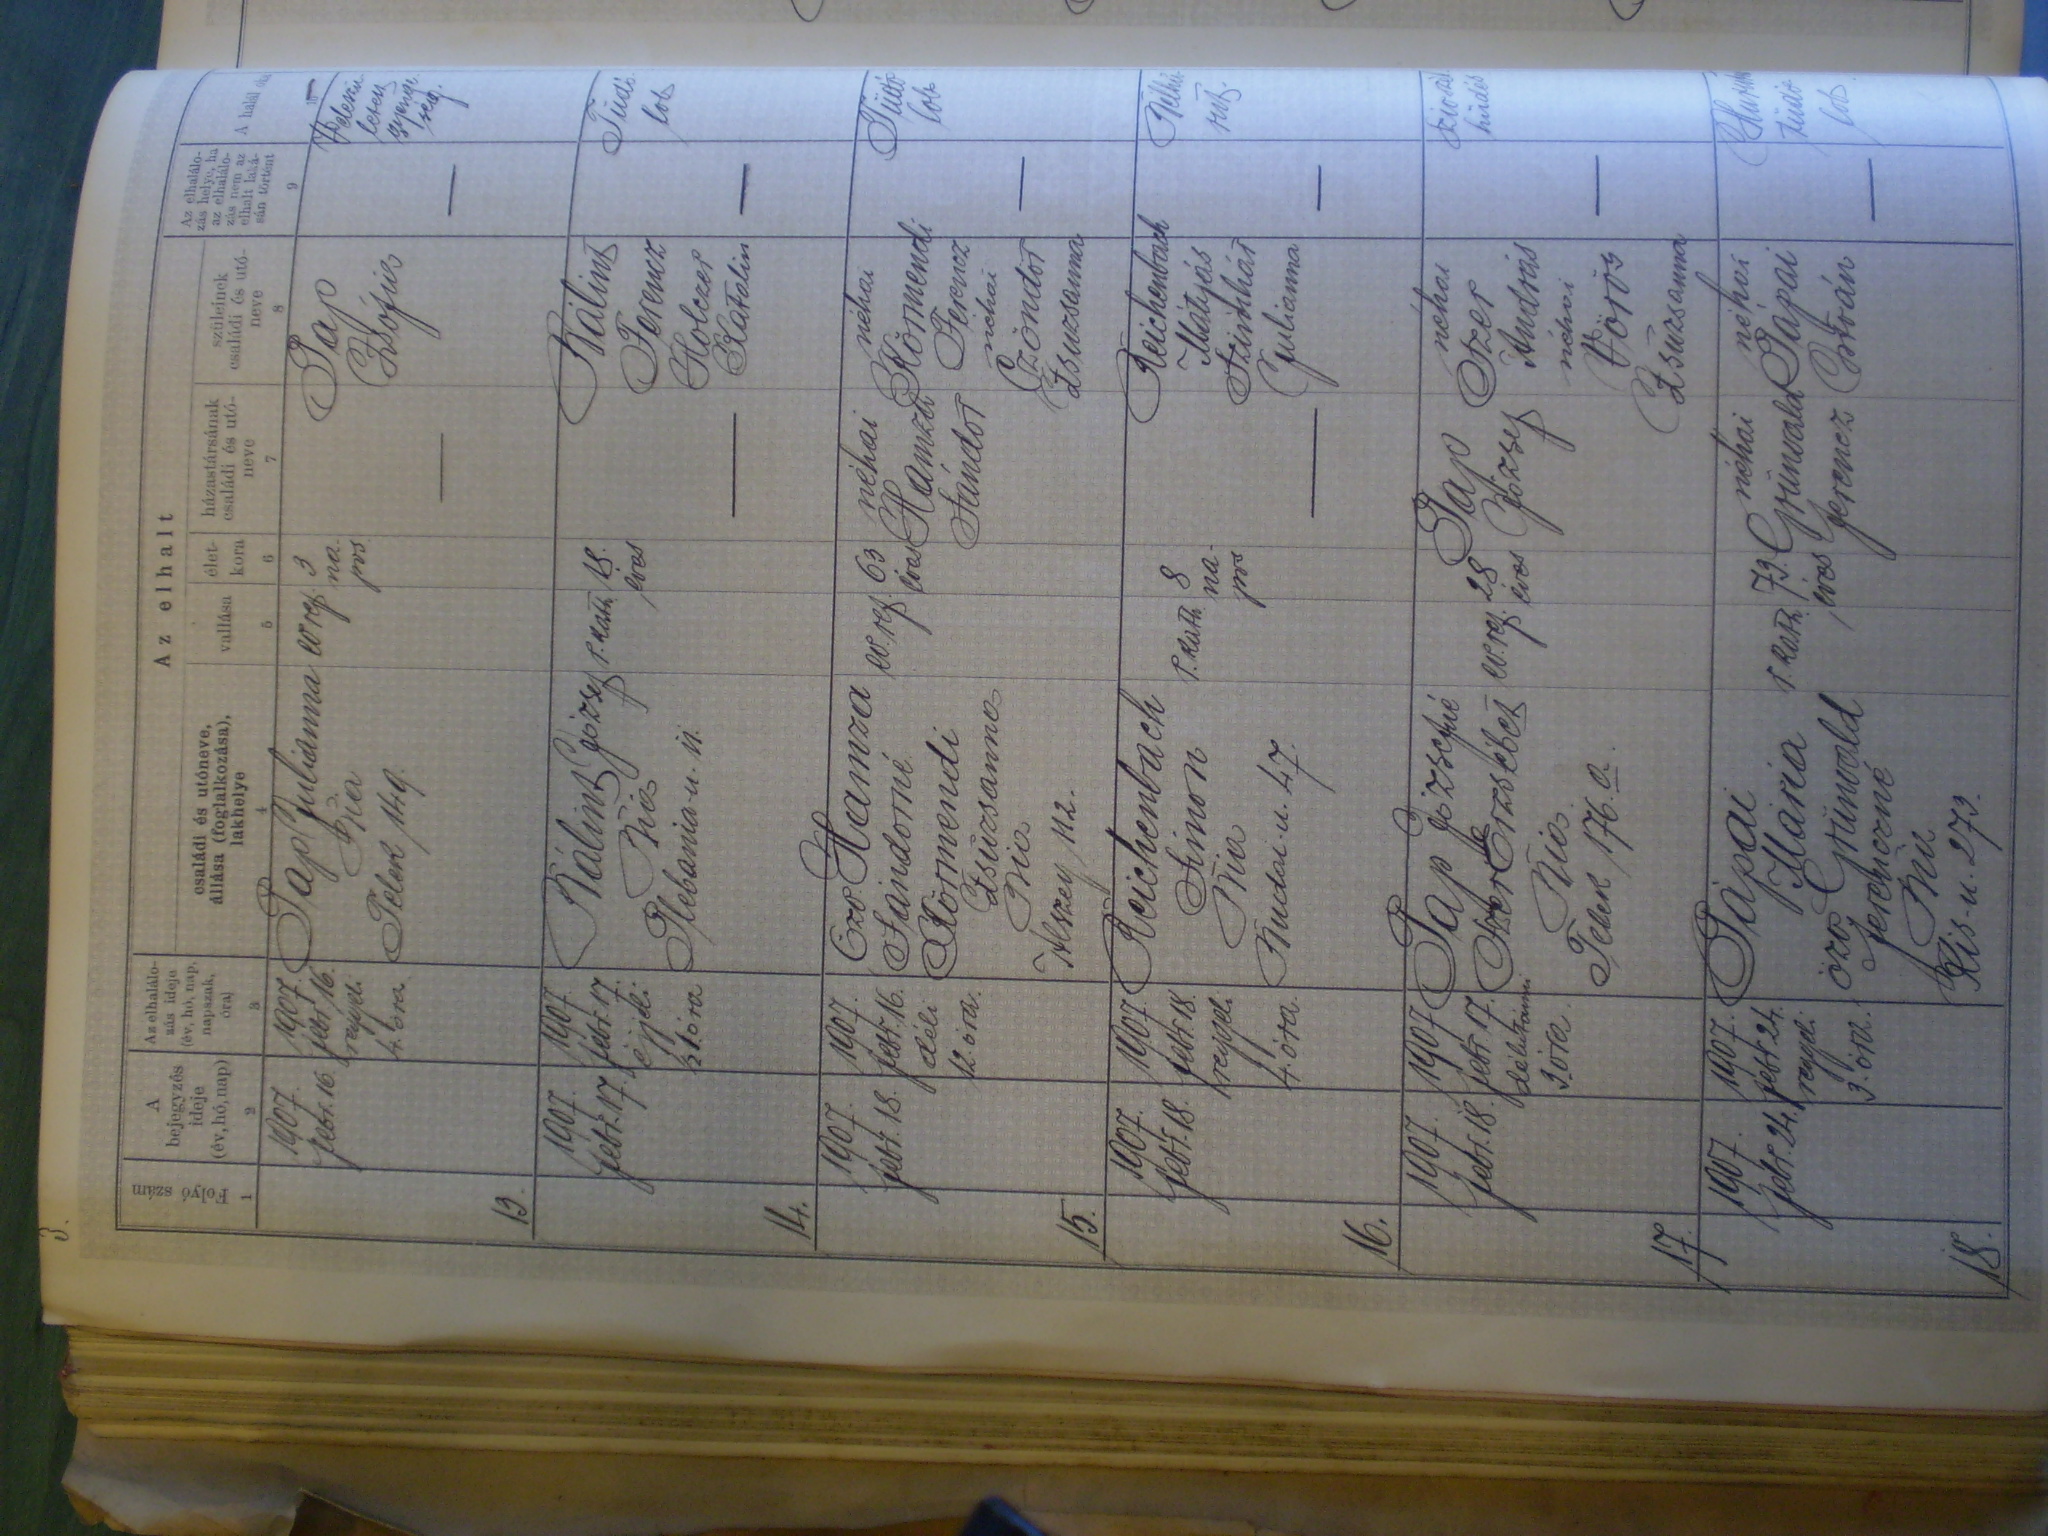 3.
Az elhalt
Folyó szám
A bejegyzés ideje (év, hó, nap)
Az elhalálo-
zás ideje
(év, hó, nap,
napszak,
óra)
családi és utóneve,
állása (foglalkozása),
lakhelye
vallása
élet-
kora
házastársának
családi és utó-
neve
szüleinek
családi és utó-
neve
Az elhalálo-
zás helye, ha
az elhalálo-
zás nem az
elhalt laká-
sán történt
A halál oka
1
2
3
4
5
6
7
8
9
13.
1907.
febr. 16.
1907.
febr. 16.
reggeli
4. óra
Pap Julianna
Bia
Telek 149.
ev. ref.
3
na-
pos
—
Pap
Zsófia
—
14.
1907.
febr. 17.
1907.
febr. 17.
éjjeli
½1 óra
Bálint József
Bia
Plebania-u. 11.
r. kath.
éves
—
Bálint
Ferencz
Holczer
Katalin
—
Tüdő
lob
15.
1907.
febr. 18.
1907.
febr. 16.
déli
12. óra.
Özv Hamza
Sándorné
Körmendi
Zsuzsanna
Bia
112.
ev. ref.
63
éves
néhai
Hamza
Sándor
néhai
Körmendi
Ferencz
néhai
Czöndör
Zsuzsanna
—
Tüdő
lob
16.
1907.
febr. 18.
1907.
febr. 18.
reggeli
4. óra.
Reichenbach
Simon
Bia
Budai-u. 47.
r. kath.
8
na-
pos
—
Reichenbach
Mátyás
Julianna
—
17.
1907.
febr. 18.
1907
febr. 17.
délutáni
3. óra.
Pap Józsefné
Szer Erzsébet
Bia
Telek 176. a.
ev. ref.
28
éves
Pap
József
néhai
Szer
András
néhai
Vörös
Zsuzsanna
—
18.
1907.
febr. 24.
1907.
febr. 24.
reggeli
3. óra.
Pápai
Mária
özv Grünvald
Ferenczné
Bia
Kis-u. 273.
r. kath.
73.
éves
néhai
Grünvald
Ferencz
néhai
Pápai
István
—
tüdő
lob.